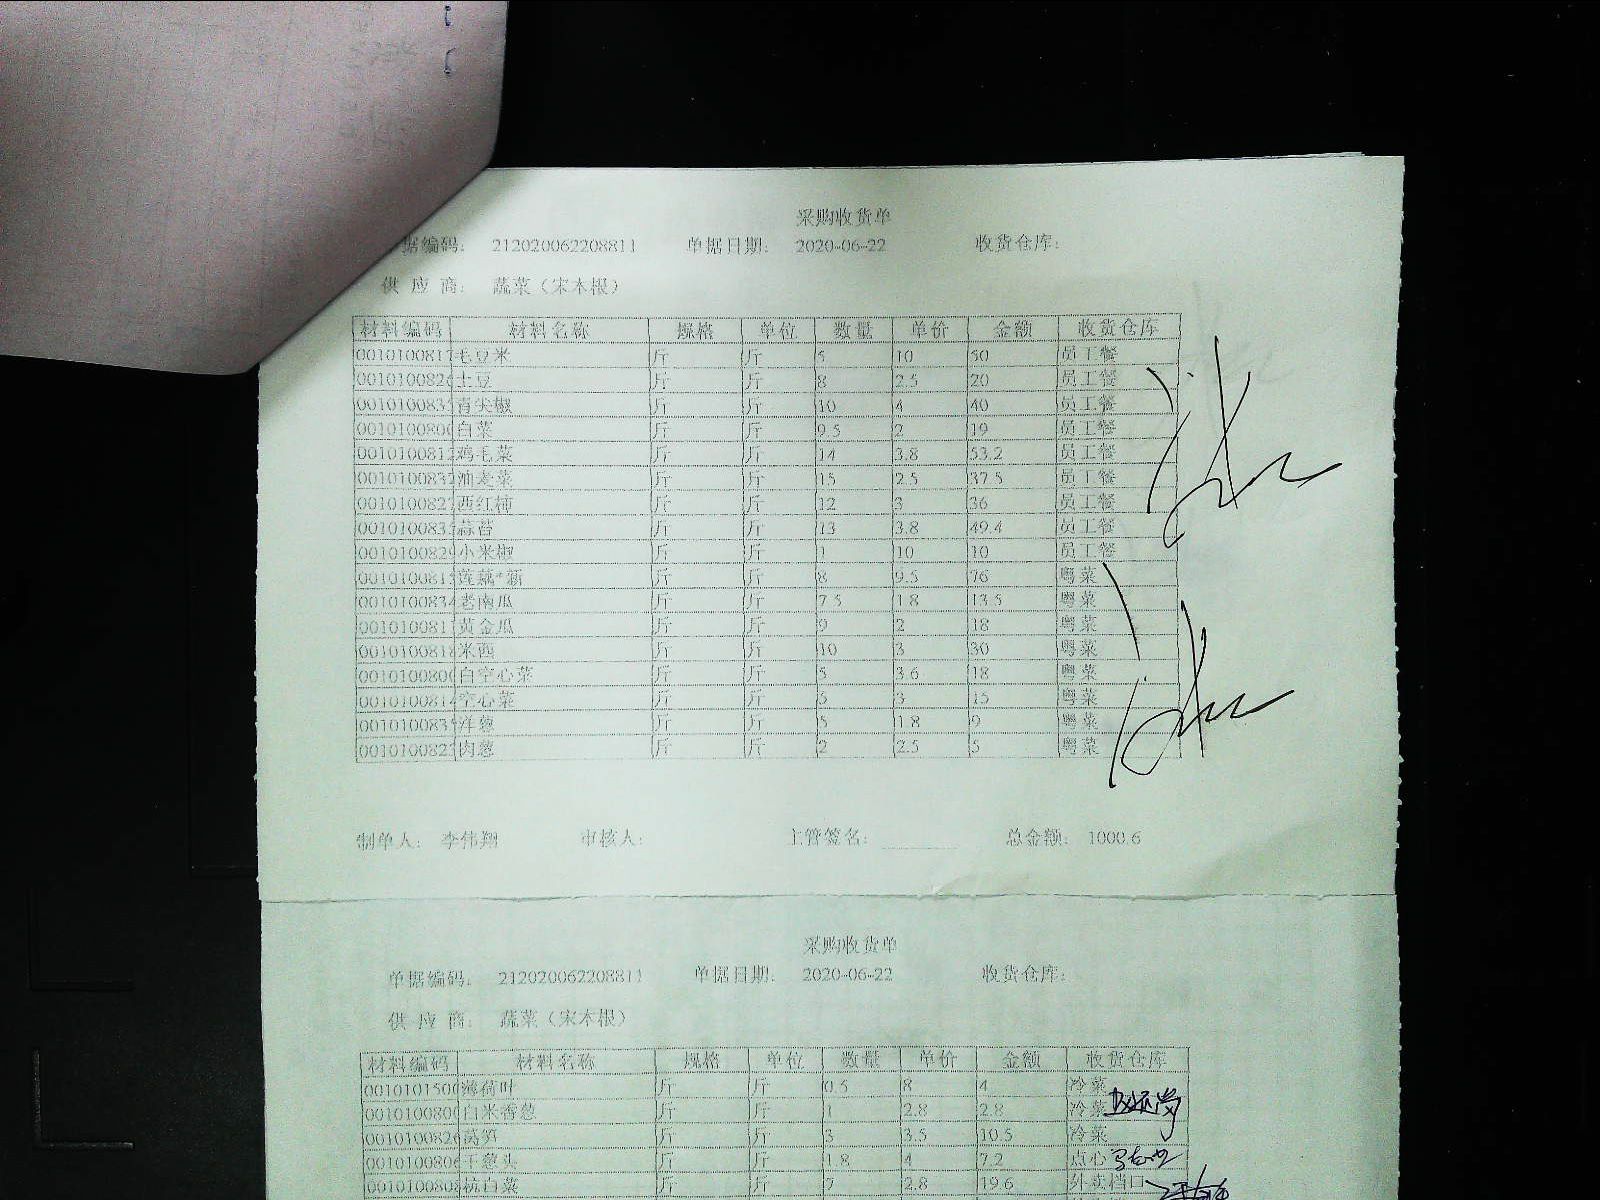 采购收货单
据编码: 212020062208811 单据日期: 2020-06-22 收货仓库:
供应商: 蔬菜（宋本根）
材料编码 材料名称 规格 单位 数量 单价 金额 收货仓库
0010100817 毛豆米 斤 斤 5 10 50 员工餐
001010082 土豆 斤 斤 8 2.5 20 员工餐
001010083 青尖椒 斤 斤 10 4 40 员工餐
001010080 白菜 斤 斤 9.5 2 19 员工餐
001010081 鸡毛菜 斤 斤 14 3.8 53.2 员工餐
001010083 油麦菜 斤 斤 15 2.5 37.5 员工餐
001010082 西红柿 斤 斤 12 3 36 员工餐
001010083 蒜苔 斤 斤 13 3.8 49.4 员工餐
001010082 小米椒 斤 斤 1 10 10 员工餐
001010081 莲藕*新 斤 斤 8 9.5 76 粤菜
001010083 老南瓜 斤 斤 7.5 1.8 13.5 粤菜
001010081 黄金瓜 斤 斤 9 2 18 粤菜
001010081 米西 斤 斤 10 3 30 粤菜
001010080 白空心菜 斤 斤 5 3.6 18 粤菜
001010081 空心菜 斤 斤 5 3 15 粤菜
001010083 洋葱 斤 斤 5 1.8 9 粤菜
001010082 肉葱 斤 斤 2 2.5 5 粤菜
制单人: 李伟翔 审核人: 主管签名: 总金额: 1000.6
采购收货单
单据编码: 212020062208811 单据日期: 2020-06-22 收货仓库:
供应商: 蔬菜（宋本根）
材料编码 材料名称 规格 单位 数量 单价 金额 收货仓库
001010150 薄荷叶 斤 斤 0.5 8 4 冷菜
001010080 白米香葱 斤 斤 1 2.8 2.8 冷菜
001010082 莴笋 斤 斤 3 3.5 10.5 冷菜
001010080 干葱头 斤 斤 1.8 4 7.2 点心
001010080 杭白菜 斤 斤 7 2.8 19.6 外卖档口